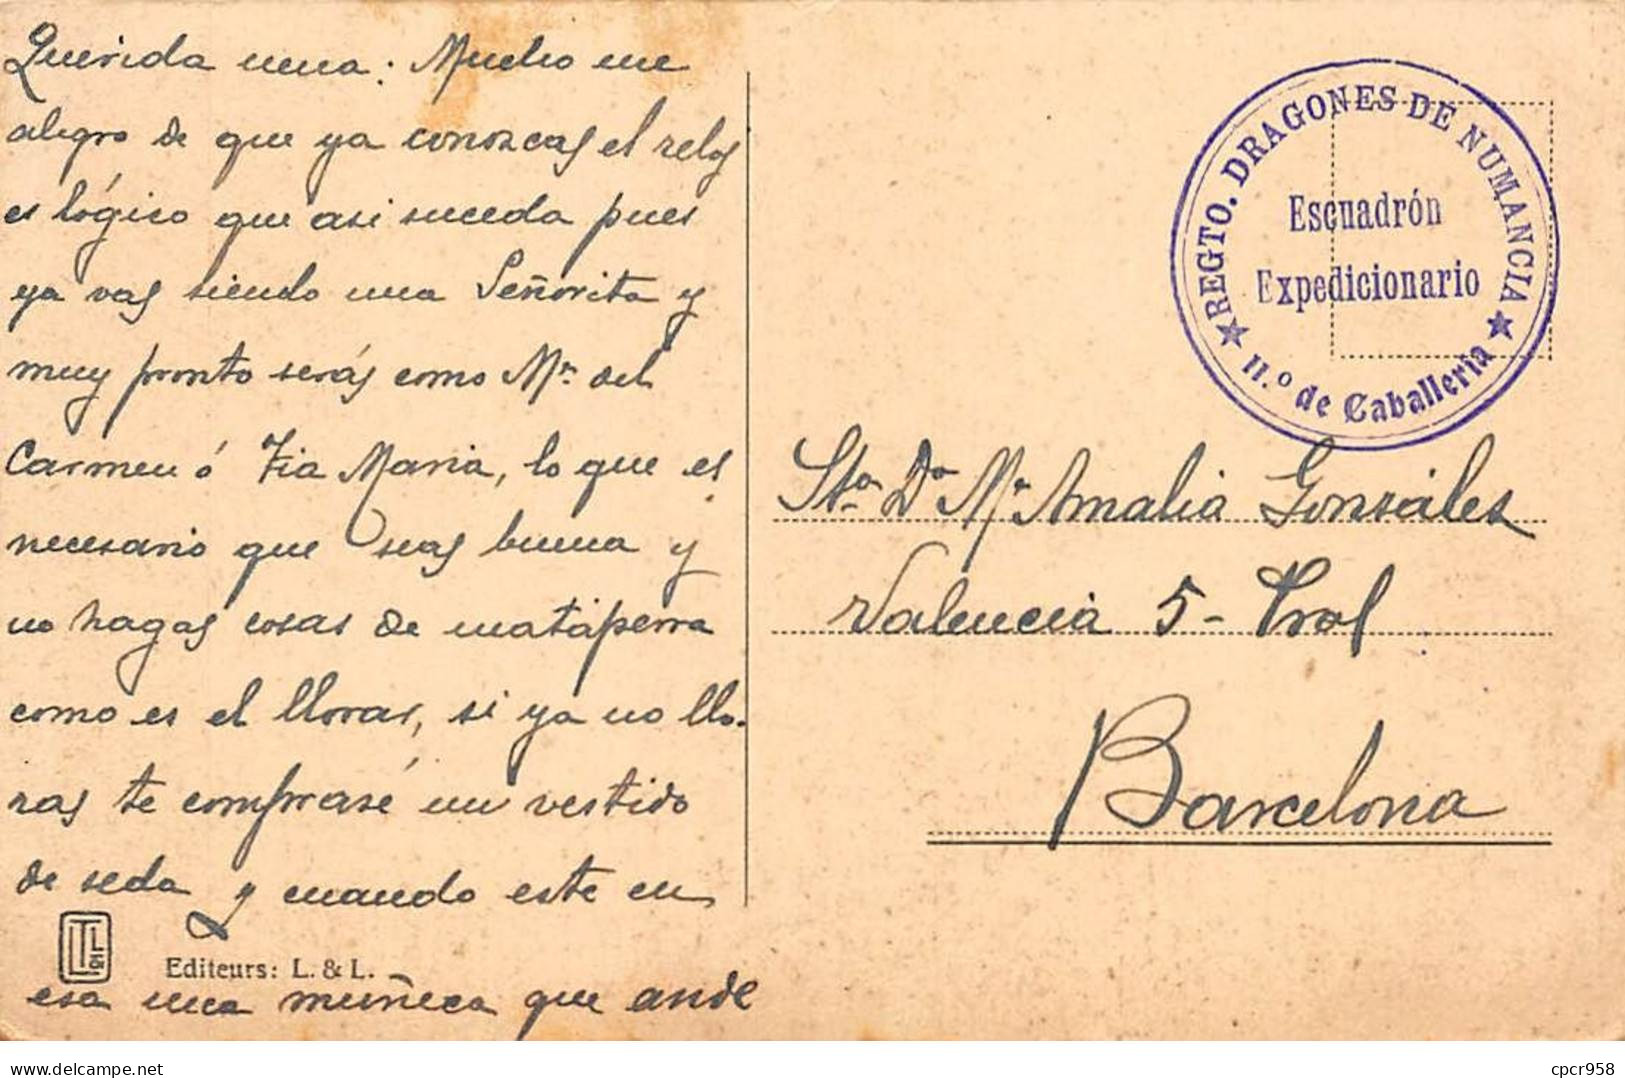 Querida nena: Mucho me
alegro de que ya conozcas el reloj
es lógico que asi suceda pues
ya vas siendo una Señorita y
muy pronto serás como Mª del
Carmen ó Tia Maria, lo que es
necesario que seas buena y
no hagas cosas de mataperra
como es el llorar, si ya no llo-
ras te comprasé un vestido
de seda y cuando este en
Editeurs: L. & L.
esa una muñeca que ande
REGTO. DRAGONES DE NUMANCIA
Escuadrón
Expedicionario
★ 11.º de Caballeria ★
Sta Dª Mª Amalia Gonzáles
Valencia 5 - Pral
Barcelona
delcampe.net
cpcr958